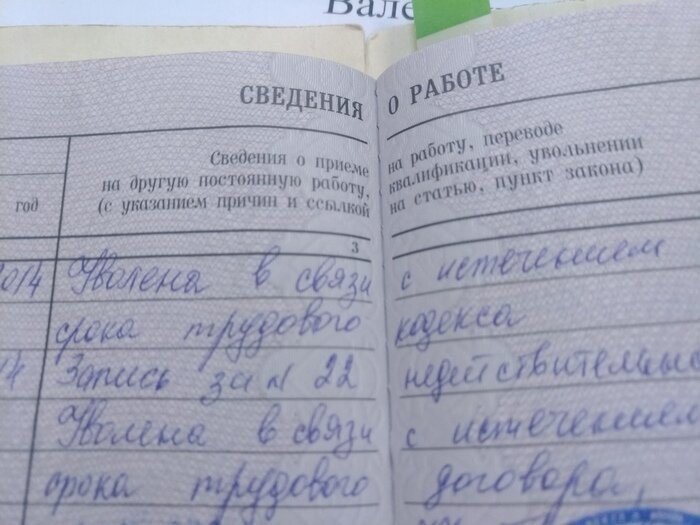 Вале
СВЕДЕНИЯ О РАБОТЕ
Сведения о приеме на работу, переводе
на другую постоянную работу, квалификации, увольнении
(с указанием причин и ссылкой на статью, пункт закона)
год
3
2014 Уволена в связи с истечением
срока трудового кодекса
14 Запись за № 22 недействительна
Уволена в связи с истечением
срока трудового договора,